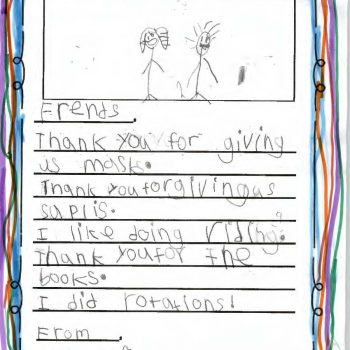 Erends,
Thank you for giving
us masks.
Thank you forgiving us
saplis.
I like doing riding.
Thank you for the
books.
I did rotations!
From